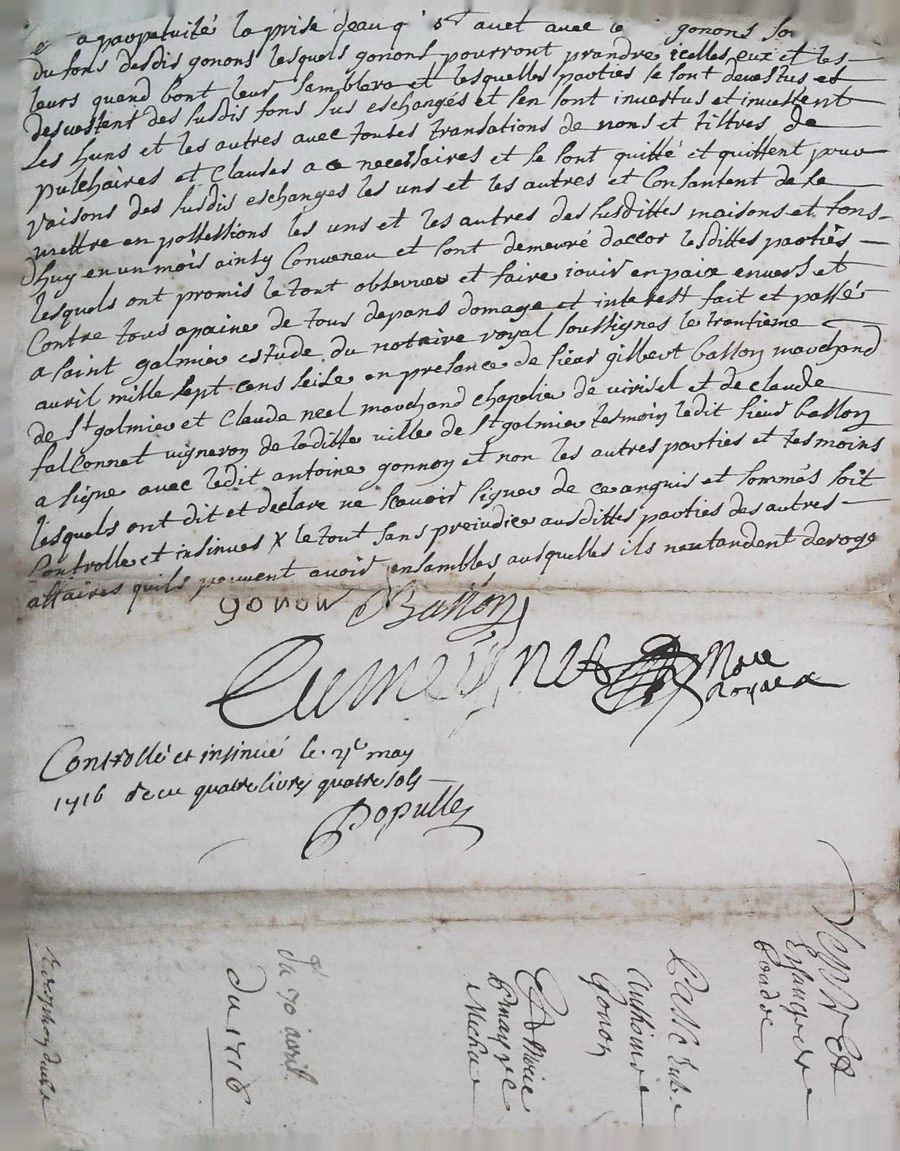 a parpetuité la prise deau q avet avec gonons
du fons desdis gonons lesquels gonons pourront prandre icelles eux et les
leurs quand bont leur semblera et lesquelles parties se sont devestus et
desvestent des susdis fons sus eschangés et sen sont investus et investent
Les huns et les autres avec toutes translations de noms et tiltres de
pulchaires et Clauses a ce necessaires et se sont quitté et quittent
vaisons des susdis eschanges les uns et les autres et Consantent de se
mettre en possessions les uns et les autres des susdittes maisons et fons
dhuy en un mois ainsy Conveneu et sont demeuré daccor lesdittes parties
lesquels ont promis le tout observer et faire iouir en paix envers et
Contre tous apaine de tous depans domage et interest fait et passé
a saint galmier estude du notaire royal soussignes le trantieme
avril mille sept cens seise en presance de sieur gilbert basson marchand
de St galmier et Claude neel marchand chapelie de virisel et de claude
falconnet vigneron de laditte ville de St galmier tesmoin ledit sieur basson
a signe avec ledit antoine gonnon et non les autres parties et tesmoins
lesquels ont dit et declare ne scavoir signer de ce anquis et sommés soit
Controlle et insinues X le tout sans preiudice ausdittes parties des autres
affaires quils peuvent avoir ensambles ausquelles ils nentandent deroge
gonon Basson
Nore
Royal
Controllé et insinué le may
1716 receu quatre livres quatre sols
Populle
Eschangde
Anthoinne
Gonon
Et Marie
du 30 avril
du 1716